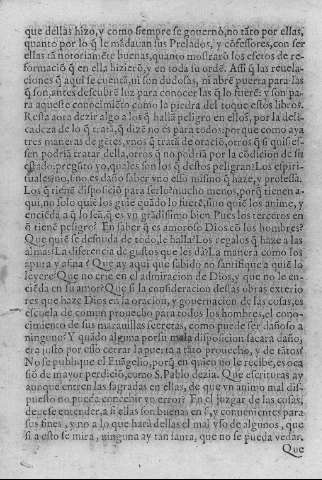 que dellas hizo, y como siempre se gouernò, no tãto por ellas,
quanto por lo q̃ le mãdauan sus Prelados, y cõfessores, con ser
ellas tã notoriamẽte buenas, quanto mostrarõ los efetos de re-
formació q̃ en ella hizierõ, y en toda su ordẽ. Assi q̃ las reuela-
ciones q̃ aqui se cuentã, ni son dudosas, ni abrẽ puerta para las
q̃ son, antes descubrẽ luz para conocer las q̃ lo fuerẽ: y son pa-
ra aqueste conocimiẽto como la piedra del toque estos libros.
Resta aora dezir algo a los q̃ hallã peligro en ellos, por la deli-
cadeza de lo q̃ tratã, q̃ dizẽ no es para todos: porque como aya
tres maneras de gẽtes, vnos q̃ tratã de oració, otros q̃ si quisies-
sen podriã tratar della, otros q̃ no podriã por la cõdicion de su
estado: pregũto yo, quales son los q̃ destos peligran? Los espiri-
tuales? no, sino es daño saber vno esso mismo q̃ haze, y professa.
Los q̃ tienẽ disposició para serlo? mucho menos, porq̃ tienen a-
qui, no solo quiẽ los guie quãdo lo fuerẽ, sino quiẽ los anime, y
enciẽda a q̃ lo seã, q̃ es vn grãdissimo bien. Pues los terceros en
q̃ tienẽ peligro? En saber q̃ es amoroso Dios cõ los hombres?
Que quiẽ se desnuda de todo, le halla? Los regalos q̃ haze a las
almas? La diferencia de gustos que les dà? La manera como los
apura y afina? Que ay aqui que sabido no santifique a quiẽ lo
leyere? Que no crie en el admiracion de Dios, y que no le en-
ciẽda en su amor? Que si la consideracion destas obras exterio
res que haze Dios en la oracion, y gouernacion de las cosas, es
escuela de comun prouecho para todos los hombres, el cono-
cimiento de sus marauillas secretas, como puede ser dañoso a
ninguno? Y quãdo alguna por su mala disposicion sacara daño,
era justo por esso cerrar la puerta a tãto prouecho, y de tãtos?
No se publique el Euãgelio, porq̃ en quien no le recibe, es oca
siõ de mayor perdiciõ, como S. Pablo dezia. Que escrituras ay
aunque entren las sagradas en ellas, de que vn animo mal dis-
puesto no pueda concebir vn error? En el juzgar de las cosas,
deuese entender, a si ellas son buenas en si, y conuenientes para
sus fines, y no a lo que harà dellas el mal vso de algunos, que
si a esto se mira, ninguna ay tan santa, que no se pueda vedar.
Que